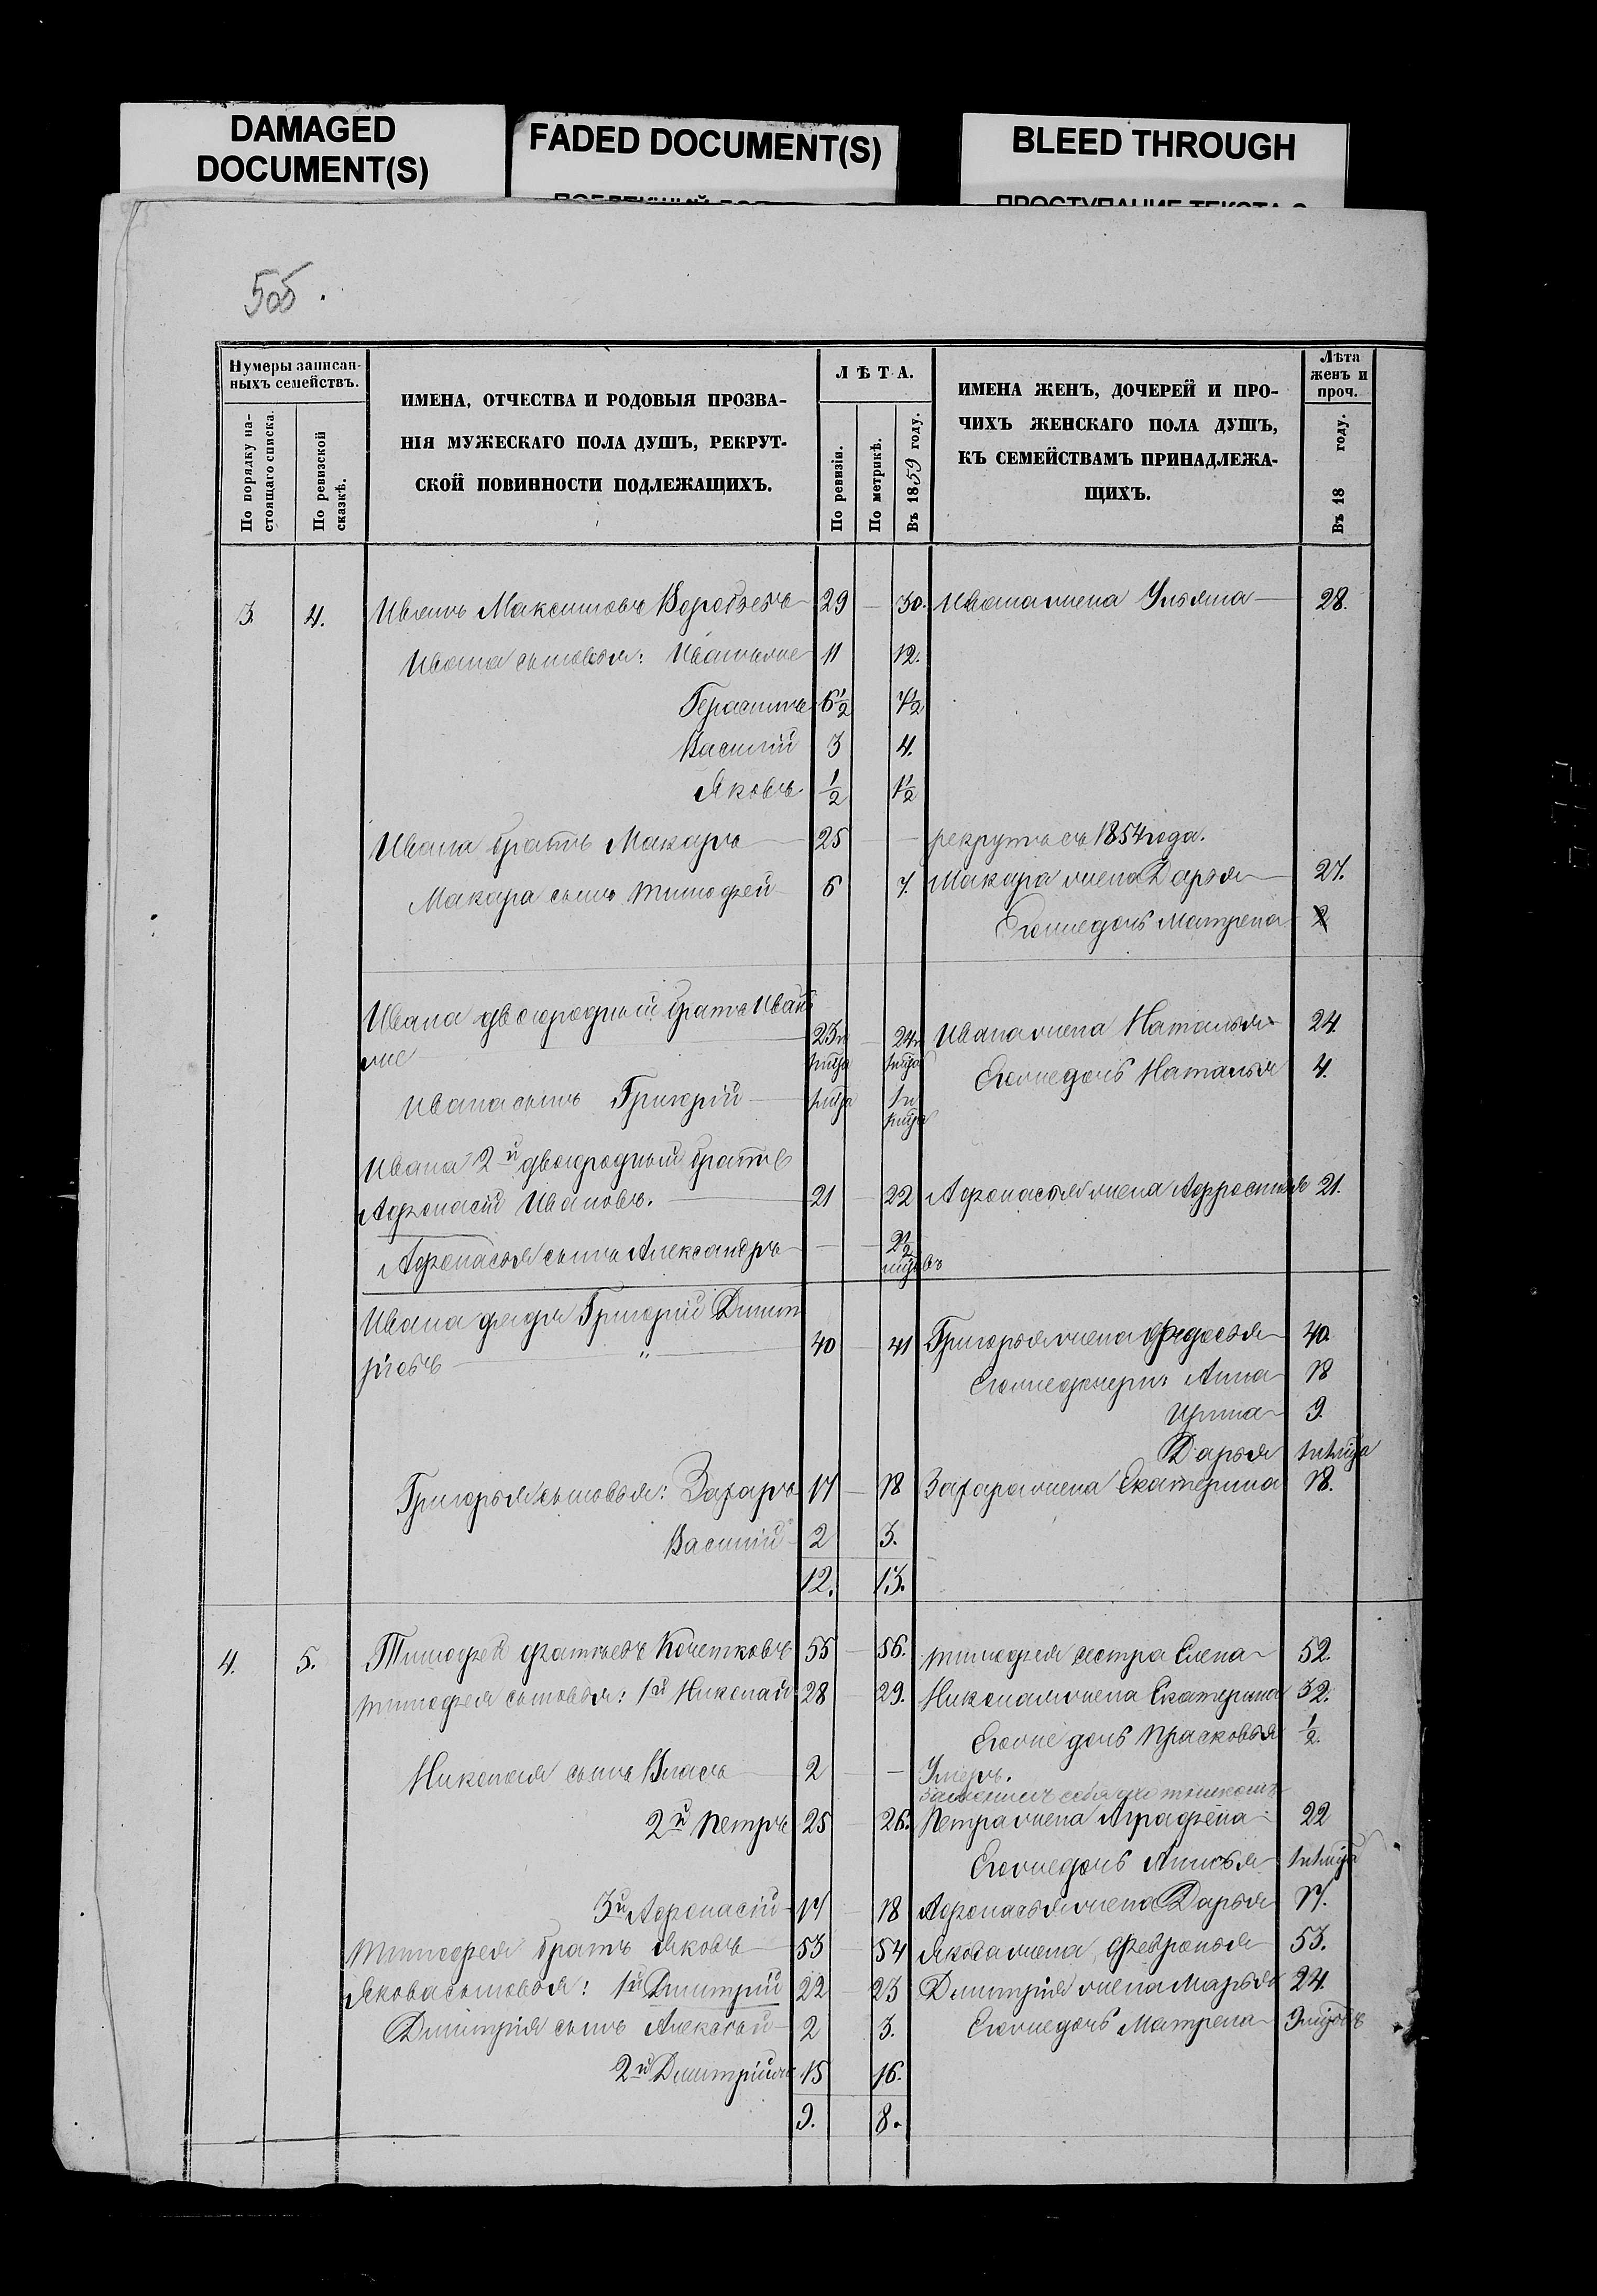 DAMAGED
DOCUMENT(S)
FADED DOCUMENT(S)
BLEED THROUGH
505.
Нумеры записан-
ныхъ семействъ.
По порядку на-
стоящаго списка.
По ревизской
сказкѣ.
ИМЕНА, ОТЧЕСТВА И РОДОВЫЯ ПРОЗВА-
НІЯ МУЖЕСКАГО ПОЛА ДУШЪ, РЕКРУТ-
СКОЙ ПОВИННОСТИ ПОДЛЕЖАЩИХЪ.
ЛѢТА.
По ревизіи.
По метрикѣ.
Въ 1859 году.
ИМЕНА ЖЕНЪ, ДОЧЕРЕЙ И ПРО-
ЧИХЪ ЖЕНСКАГО ПОЛА ДУШЪ,
КЪ СЕМЕЙСТВАМЪ ПРИНАДЛЕЖА-
ЩИХЪ.
Лѣта
женъ и
проч.
Въ 18 году.
3. 4. Иванъ Максимовъ 29 30. Ивана жена Ульяна 28.
Ивана сыновья: 11 12.
Герасимъ 6½ 7½
Василій 3 4.
Яковъ ½ 1½
Ивана братъ Макаръ 25 рекрутъ съ 1854 года.
Макара сынъ Тимофей 6 7. Макара жена Дарья 27.
Его же дочь Матрена 2
Ивана двоюродный братъ Иванъ
же 23 24 Ивана жена Наталья 24.
Его же дочь Наталья 4.
Ивана сынъ Григорій
Ивана 2й двоюродный братъ
Афонасій Ивановъ. 21 22 Афонасья жена 21.
Афонасья сынъ Александръ
Ивана дядя Григорій Димит
ріевъ " 40 41 Григорья жена Федосья 40.
Его же дочери: Анна 18
Ирина 9.
Дарья
Григорья сыновья: Захаръ 17 18 Захара жена Екатерина 18.
Василій 2 3.
12. 13.
4. 5. Тимофей Фатѣевъ Кочетковъ 55 56. Тимофея сестра Елена 52.
Тимофея сыновья: 1й Николай 28 29. Николая жена Екатерина 32.
Его же дочь Прасковья ½.
Николая сынъ Власъ 2 Умеръ.
2й Петръ 25 26. Петра жена Аграфена 22
Его же дочь Анисья
3й Афонасій 17 18 Афонасья жена Дарья 17.
Тимофея братъ Яковъ 53 54 Якова жена Февронья 53.
Якова сыновья: 1й Дмитрій 22 23 Дмитрія жена Марья 24.
Дмитрія сынъ Алексѣй 2 3. Его же дочь Матрена
2й Дмитрій же 15 16.
9. 8.